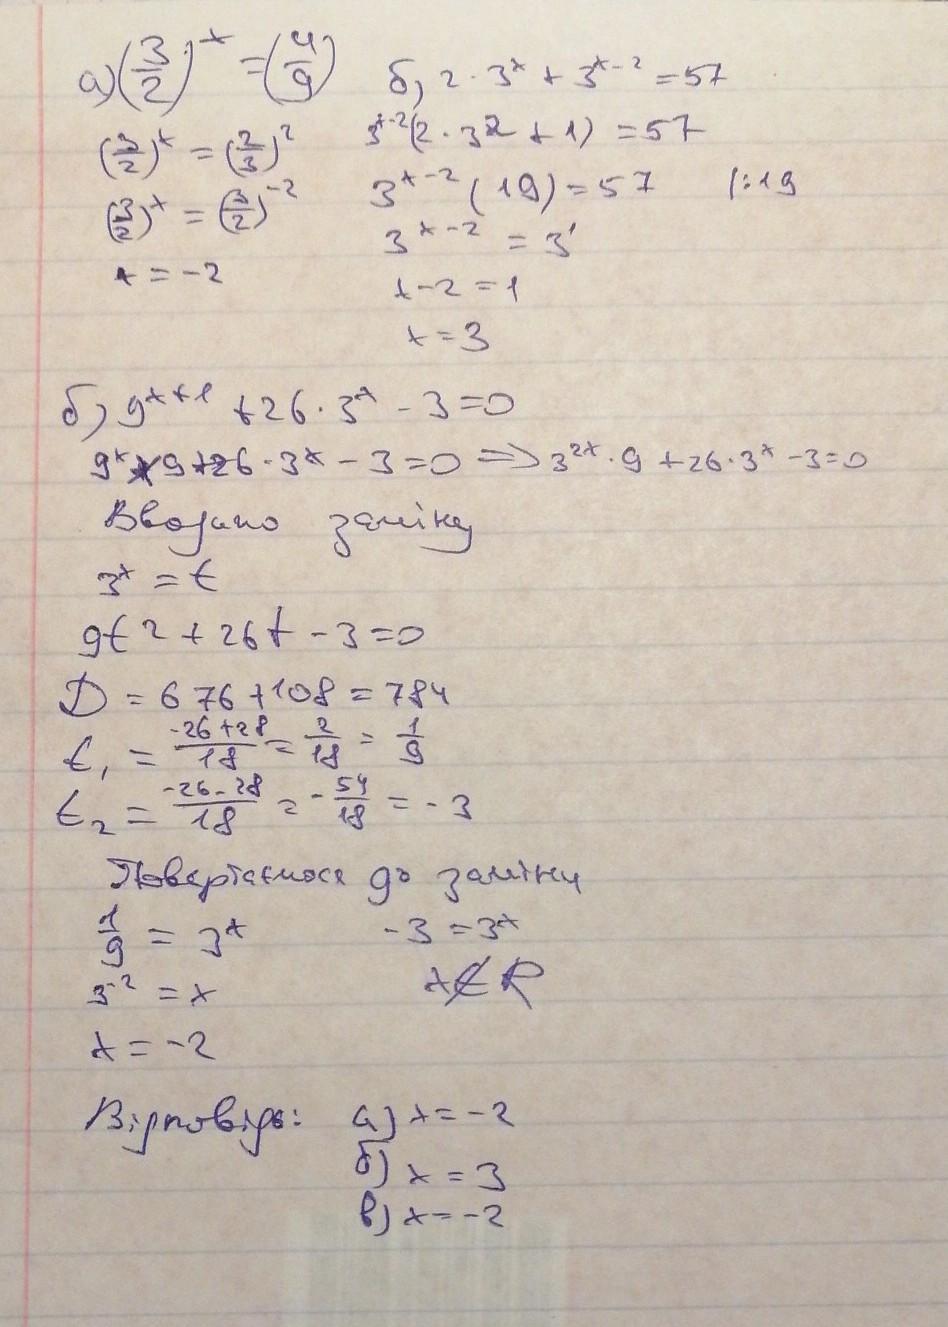 а) (3/2)^x = (4/9)
(3/2)^x = (2/3)^2
(3/2)^x = (3/2)^-2
x = -2
б) 2·3^x + 3^x-2 = 57
3^x-2(2·3^2 + 1) = 57
3^x-2 (19) = 57 |:19
3^x-2 = 3^1
x-2 = 1
x = 3
б) 9^x+1 + 26·3^x - 3 = 0
9^x · 9 + 26·3^x - 3 = 0 => 3^2x · 9 + 26·3^x - 3 = 0
Вводимо заміну
3^x = t
9t^2 + 26t - 3 = 0
D = 676 + 108 = 784
t₁ = (-26+28)/18 = 2/18 = 1/9
t₂ = (-26-28)/18 = -54/18 = -3
Повертаємося до заміни
1/9 = 3^x -3 = 3^x
3^-2 = x x ∉ R
x = -2
Відповідь: а) x = -2
б) x = 3
в) x = -2